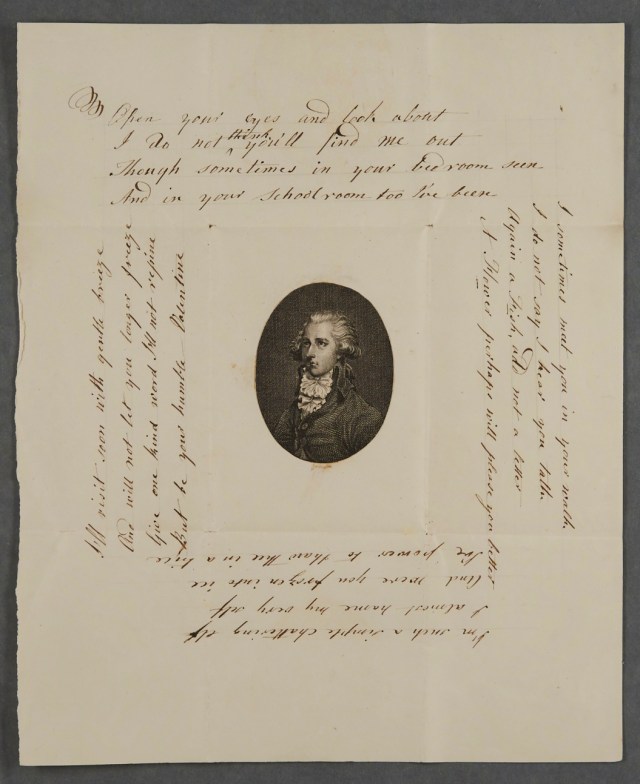 Open your eyes and look about
I do not think you'll find me out
Though sometimes in your bedroom seen
And in your schoolroom too I've been
I sometimes meet you in your walk.
I do not say I hear you talk.
Again a Fish, add not a letter
A Flower perhaps will please you better
I'm such a simple chattering elf
I almost name my very self
And were you frozen into ice
I've power to thaw thee in a trice
I'll visit soon with gentle breeze
And will not let you longer freeze
Give one kind word I'll not repine
But be your humble Valentine